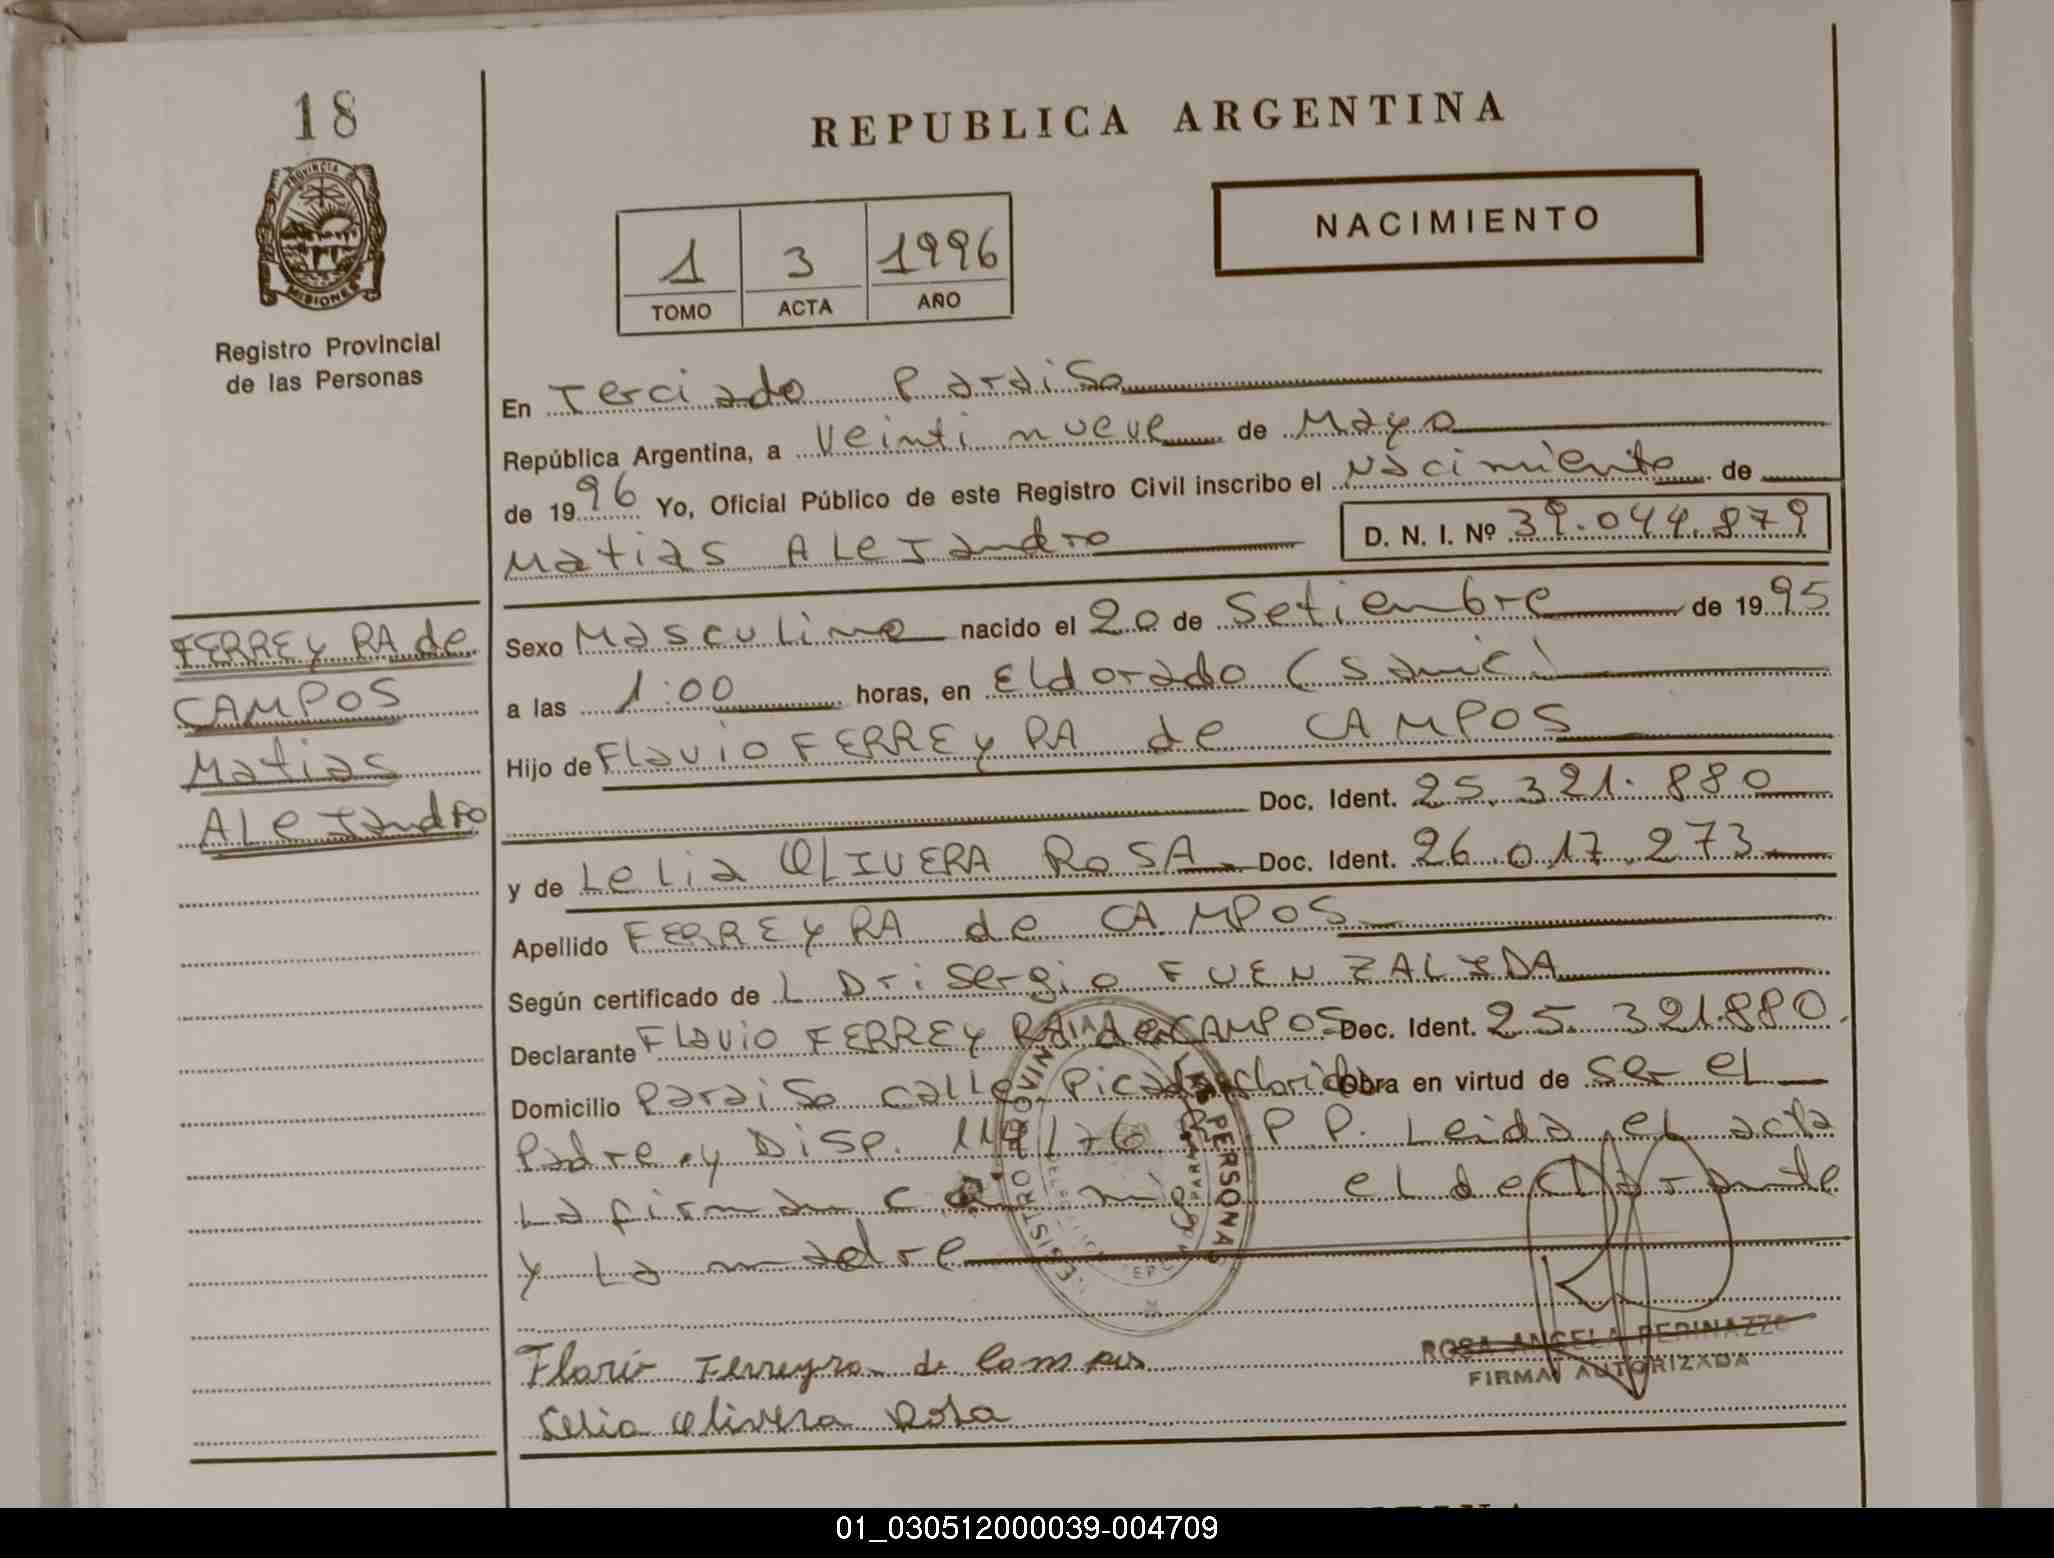 18
REPUBLICA ARGENTINA
PROVINCIA DE
MISIONES
Registro Provincial
de las Personas
NACIMIENTO
1 3 1996
TOMO ACTA AÑO
En Terciado Paraiso
República Argentina, a Veinti nueve de Mayo
de 1996 Yo, Oficial Público de este Registro Civil inscribo el Nacimiento de
Matias ALeJandro D. N. I. Nº 39.044.879
FERREyRA de
CAMPOS
Matias
ALeJandro
Sexo Masculino nacido el 20 de Setiembre de 1995
a las 1:00 horas, en Eldorado (Samic)
Hijo de Flavio FERREyRA de CAMPOS
Doc. Ident. 25.321.880
y de Lelia OLIVERA ROSA Doc. Ident. 26.017.273
Apellido FERREyRA de CAMPOS
Según certificado de L Dr: Sergio FUENZALIDA
Declarante Flavio FERREyRA de CAMPOS Doc. Ident. 25.321.880.
Domicilio Paraiso calle Picada florida Obra en virtud de ser el
Padre y Disp. R.P.P. Leida el acta
La firman conmigo el declarante
y La madre
REGISTRO PROVINCIAL DE LAS PERSONAS
Flavio Ferreyra de Campos
ROSA ANGELA PERINAZZO
FIRMA AUTORIZADA
Lelia Olivera Rosa
01_030512000039-004709